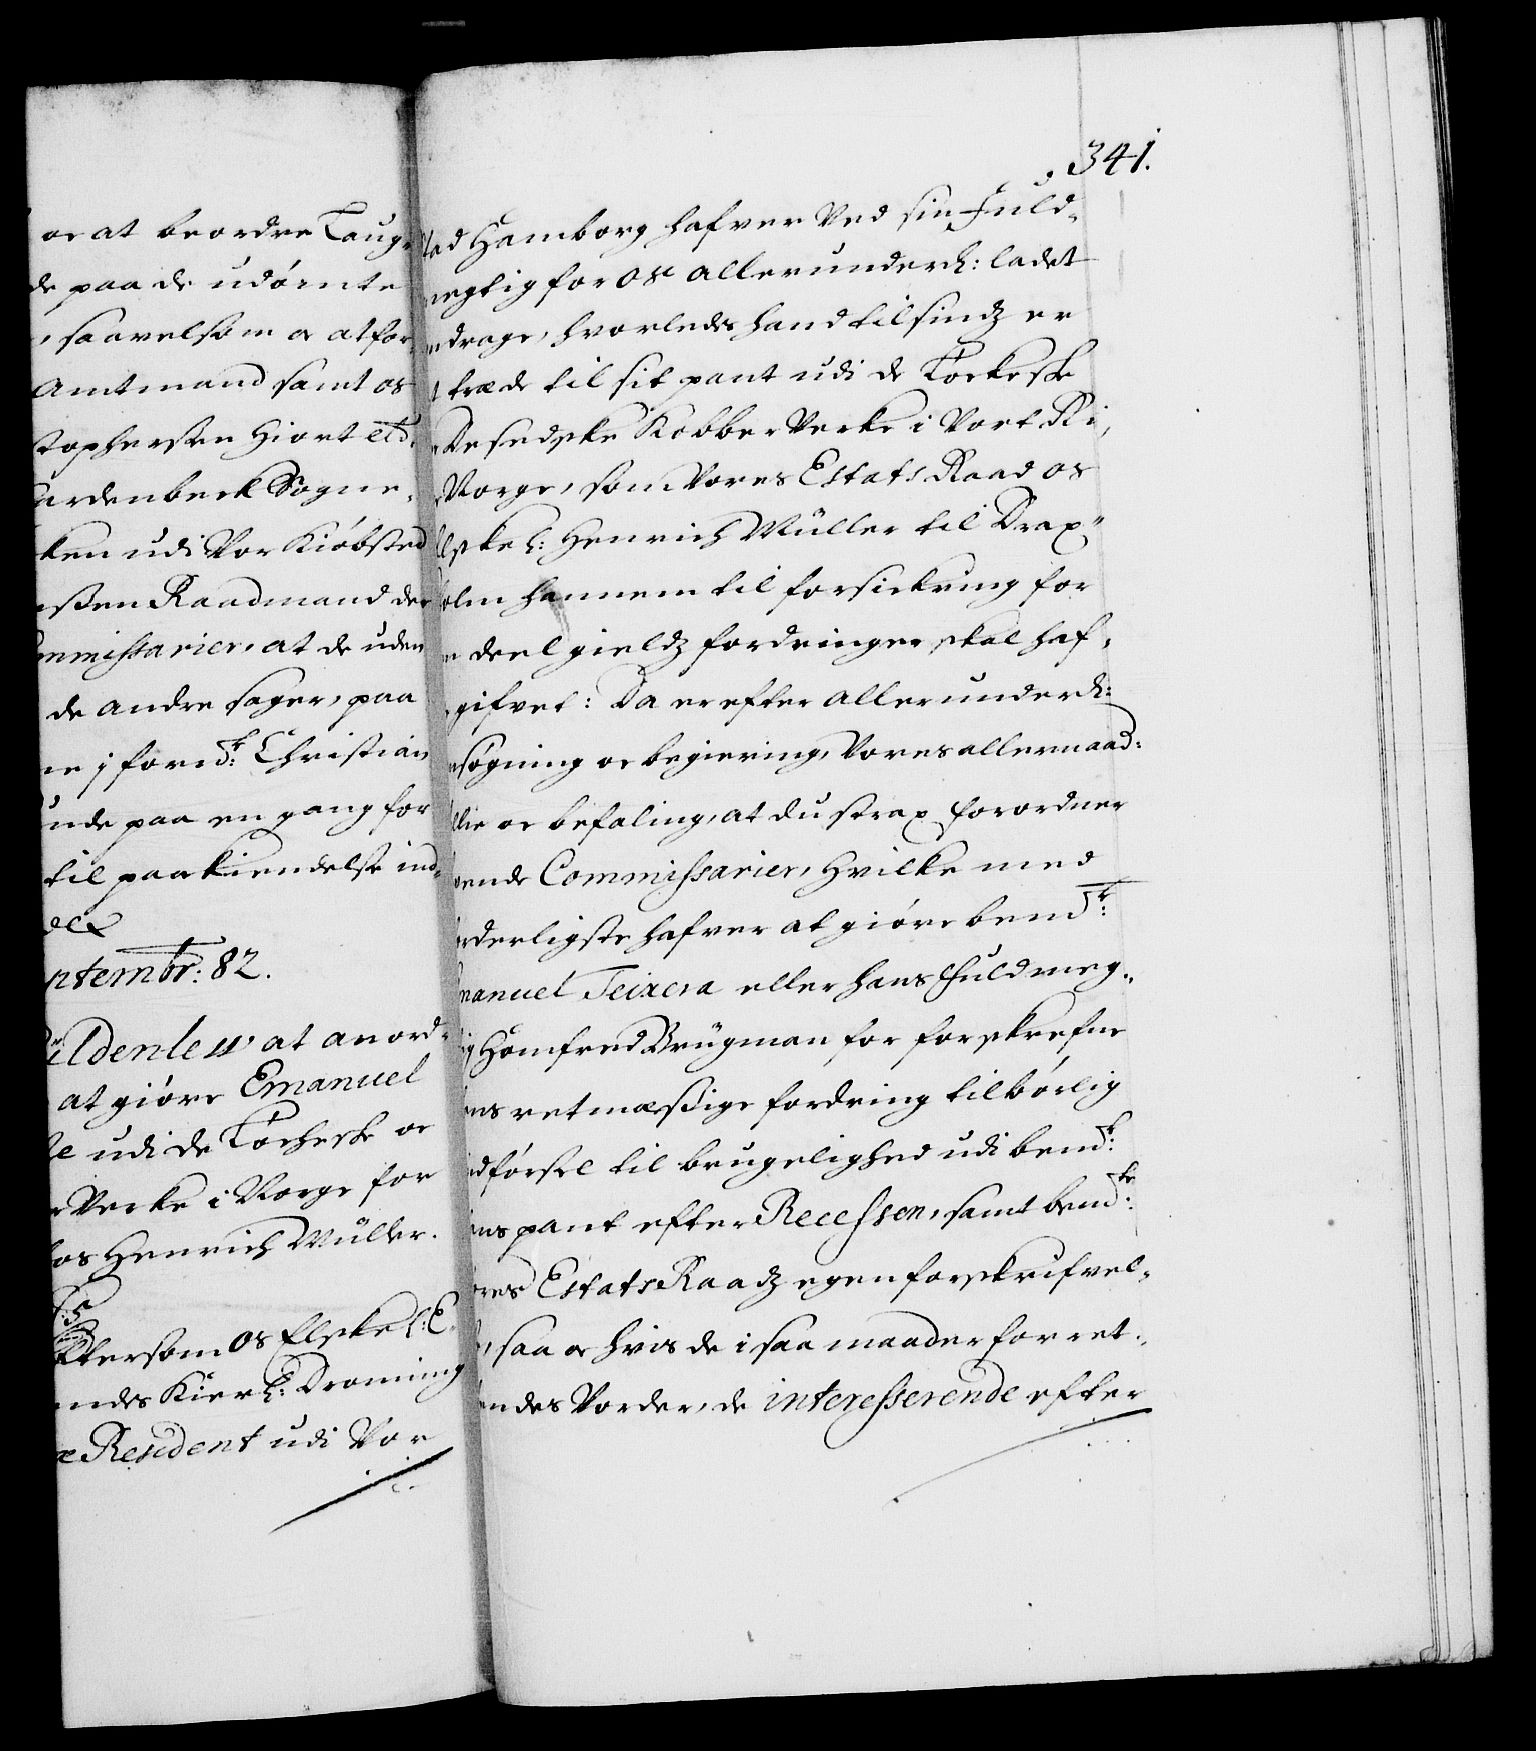 or at beordre Laug-
de paa de udömte
, saavelsom oc at for-
Amtmand samt os
stophersen Hiort etc.
ardenbeck Sogne-
ken udi Vor Kiöbsted
nßen Raadmand der
ommissarier, at de uden
de andre sager, paa
ne j forn.te Christian
unde paa en gang for
til paakiendelse ind-
dex
ptembr: 82.
Gÿldenlew at anord-
at giöre Emanuel
le udi de Löcheske oc
r Verke i Norge for
hos Henrich Müller.
C:5
Eftersom Os Elskel: E-
ndes Kierl: Droning
e Resident udi Vor
341.
tad Hamborg hafver Ved sin Fuld-
megtig for Os allerunderd: ladet
ndrage, hvorledes hand tilsindz er
t træde til sit pant udi de Löckeske
Kobber Verke i Vort Ri,
Norge, som Vores Estats Raad Os
lskel: Henrich Müller til Drax-
olm hannem til forsickring for
n deel gieldz fordringer skal haf-
gifvet: Da er efter allerunderd:
nsögning oc begiering, Vores allernaad:
llie oc befaling, at du strax forordner
vende Commissarier, Hvilke med
orderligste hafver at giöre bem.te:
manuel Teixera eller hans Fuldmeg-
ig Homfred Brügman for forskrefne
ans retmæßige fordring tilbörlig
ndförsel til brugelighed udi bem.te:
ans pant efter Recessen, samt bem.te:
ores Estats Raadz egen forskrifvel-
, saa oc hvis de i saa maader forret-
endes Vorder, de interesserende efter